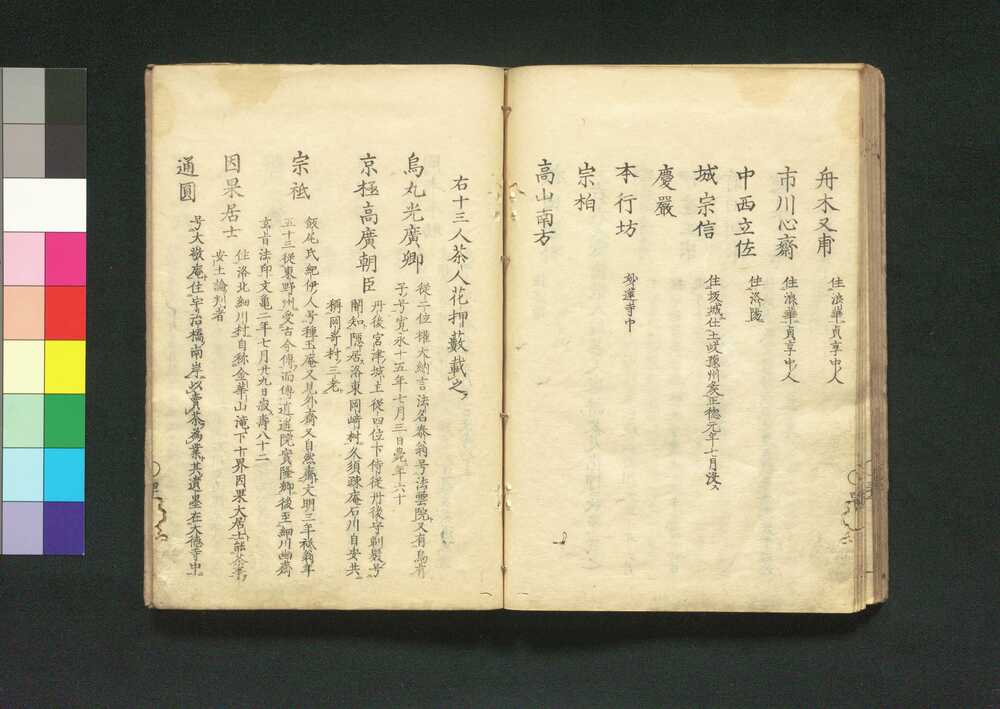 舟木又甫 住浪華貞享中人
市川心齋 住浪華貞享中人
中西立佐 住洛陽
城宗信 住坂城仕土岐豫州矦正徳元年七月没
慶嚴
本行坊 即蓮寺中
宗柏
高山南方
右十三人茶人花押藪載之
烏丸光廣卿 従二位權大納言法名泰翁号法雲院又有烏有
子号寛永十五年七月三日薨年六十
京極高廣朝臣 丹後宮津城主従四位下侍従丹後守剃髪号
閑知隠居洛東岡﨑村久須疎庵石川自安共
稱岡嵜村三老
宗祗 飯尾氏紀伊人号種玉庵又見外齋又自然齋文明三年祗翁年
五十三従東野州受古今傳而傳逍遥院實隆卿後至細川幽齋
玄旨法印文亀二年七月廿九日寂壽八十二
因果居士 住洛北細川村自称金華山滝下十界因果大居士能茶事
安土論判者
通圓 号大敬庵住宇治橋南岸以賣茶為業其遺墨在大徳寺中